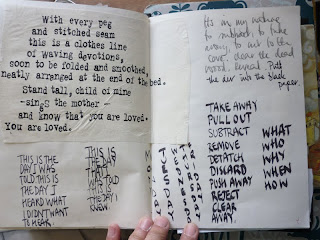 with every peg
and stitched seam
this is a clothes line
of waving devotions,
soon to be folded and smoothed,
neatly arranged at the end of the bed.
Stand tall, child of mine
-sings the mother -
and know that you are loved.
You are loved.
THIS IS THE
DAY I WAS
TOLD THIS IS
THE DAY I
HEARD WHAT
I DIDN'T WANT
TO HEAR.
THIS IS
THE DAY
THAT
I WAS TOLD
THIS IS
THE DAY I
KNEW.
It's in my nature
to subtract, to take
away, to cut to the
core, clear the dead
wood. Reveal. Put
the div into the black
paper.
TAKE AWAY
PULL OUT
SUBTRACT
REMOVE
DETATCH
DISCARD
PUSH AWAY
REJECT
CLEAR
AWAY.
WHAT
WHO
WHY
WHEN
HOW